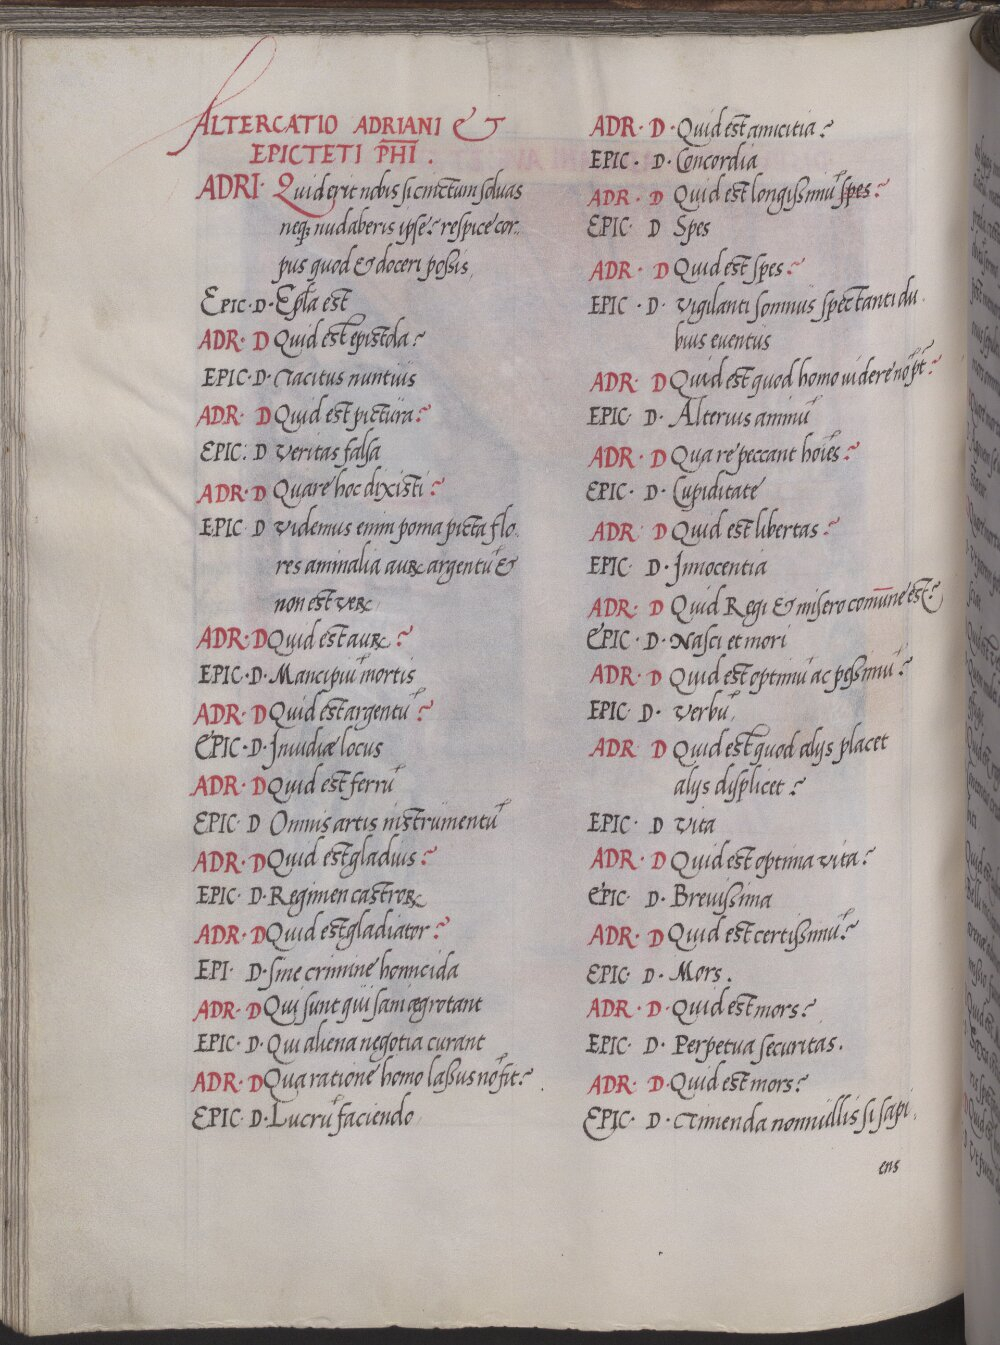 ALTERCATIO ADRIANI &
EPICTETI PH̅I̅.
ADRI· Quid erit nobis si cinctum solvas
neq; nudaberis ipse? respice cor
pus quod & doceri poßis
EPIC·D·Ep̅la est
ADR·D Quid est epistola?
EPIC·D·Tacitus nuntius
ADR·D Quid est pictura?
EPIC: D veritas falsa
ADR·D Quare hoc dixisti?
EPIC D videmus enim poma picta flo
res animalia auꝝ argentu̅ &
non est veꝝ
ADR·D Quid est auꝝ?
EPIC·D·Mancipiu̅ mortis
ADR·D Quid est argentu̅?
EPIC·D·Inuidiæ locus
ADR·D Quid est ferru̅
EPIC·D Omnis artis instrumentu̅
ADR·D Quid est gladius?
EPIC D·Regimen castroꝝ
ADR·D Quid est gladiator?
EPI· D·sine crimine homicida
ADR·D Qui sunt qui sani ægrotant
EPIC·D·Qui aliena negotia curant
ADR·D Qua ratione homo laßus no̅ fit?
EPIC D·Lucru̅ faciendo
ADR·D·Quid est amicitia?
EPIC·D·Concordia
ADR·D Quid est longißimu̅ spes?
EPIC D Spes
ADR·D Quid est spes?
EPIC·D·vigilanti somnus spectanti du
bius euentus
ADR·D Quid est quod homo uidere no̅ pt̅?
EPIC D·Alterius animu̅
ADR·D Quare peccant ho̅i̅es?
EPIC·D·Cupiditate
ADR·D Quid est libertas?
EPIC D·Innocentia
ADR·D Quid Regi & misero com̅une est?
EPIC·D·Nasci et mori
ADR·D Quid est optimu̅ ac peßimu̅?
EPIC D· verbu̅
ADR D Quid est quod alijs placet
alijs displicet?
EPIC· D vita
ADR·D Quid est optima vita?
EPIC D·Breuißima
ADR·D Quid est certißimu̅?
EPIC D·Mors.
ADR·D·Quid est mors?
EPIC D·Perpetua securitas.
ADR·D·Quid est mors?
EPIC D·Timenda nonnullis si sapi
ens